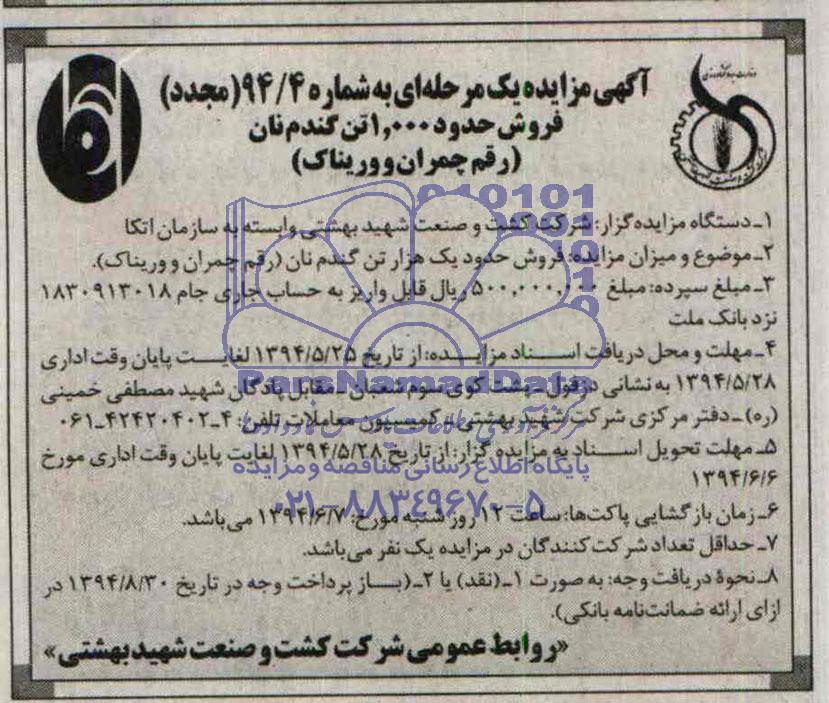 آگهی مزایده یک مرحله‌ای به شماره ۹۴/۴ (مجدد)
فروش حدود ۱,۰۰۰ تن گندم نان
(رقم چمران و وریناک)
۱ـ دستگاه مزایده‌گزار: شرکت کشت و صنعت شهید بهشتی وابسته به سازمان اتکا
۲ـ موضوع و میزان مزایده: فروش حدود یک هزار تن گندم نان (رقم چمران و وریناک).
۳ـ مبلغ سپرده: مبلغ ۵۰۰,۰۰۰,۰۰۰ ریال قابل واریز به حساب جاری جام ۱۸۳۰۹۱۳۰۱۸
نزد بانک ملت
۴ـ مهلت و محل دریافت اسناد مزایده: از تاریخ ۱۳۹۴/۵/۲۵ لغایت پایان وقت اداری
۱۳۹۴/۵/۲۸ به نشانی دزفول ـ پشت کوی سوم شعبان ـ مقابل پادگان شهید مصطفی خمینی
(ره) ـ دفتر مرکزی شرکت شهید بهشتی ـ کمیسیون معاملات تلفن: ۴ـ۰۶۱-۴۲۴۲۰۴۰۲
۵ـ مهلت تحویل اسناد به مزایده گزار: از تاریخ ۱۳۹۴/۵/۲۸ لغایت پایان وقت اداری مورخ
۱۳۹۴/۶/۶
۶ـ زمان بازگشایی پاکت‌ها: ساعت ۱۲ روز شنبه مورخ: ۱۳۹۴/۶/۷ می‌باشد.
۷ـ حداقل تعداد شرکت‌کنندگان در مزایده یک نفر می‌باشد.
۸ـ نحوۀ دریافت وجه: به صورت ۱ـ (نقد) یا ۲ـ (باز پرداخت وجه در تاریخ ۱۳۹۴/۸/۳۰ در
ازای ارائه ضمانت‌نامه بانکی).
«روابط عمومی شرکت کشت و صنعت شهید بهشتی»
ParsNamadData
پایگاه اطلاع رسانی مناقصه و مزایده
۰۲۱-۸۸۳۴۹۶۷۰-۵